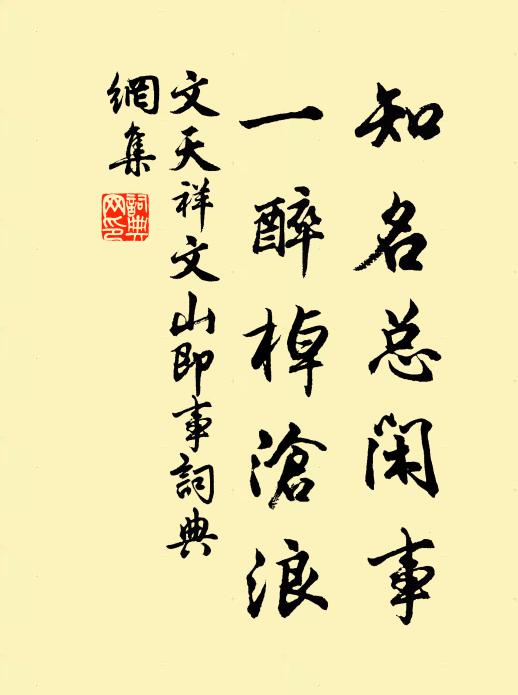 知名总闲事
一醉棹滄浪
文天祥文山即事詞典
網集
詞典
网印